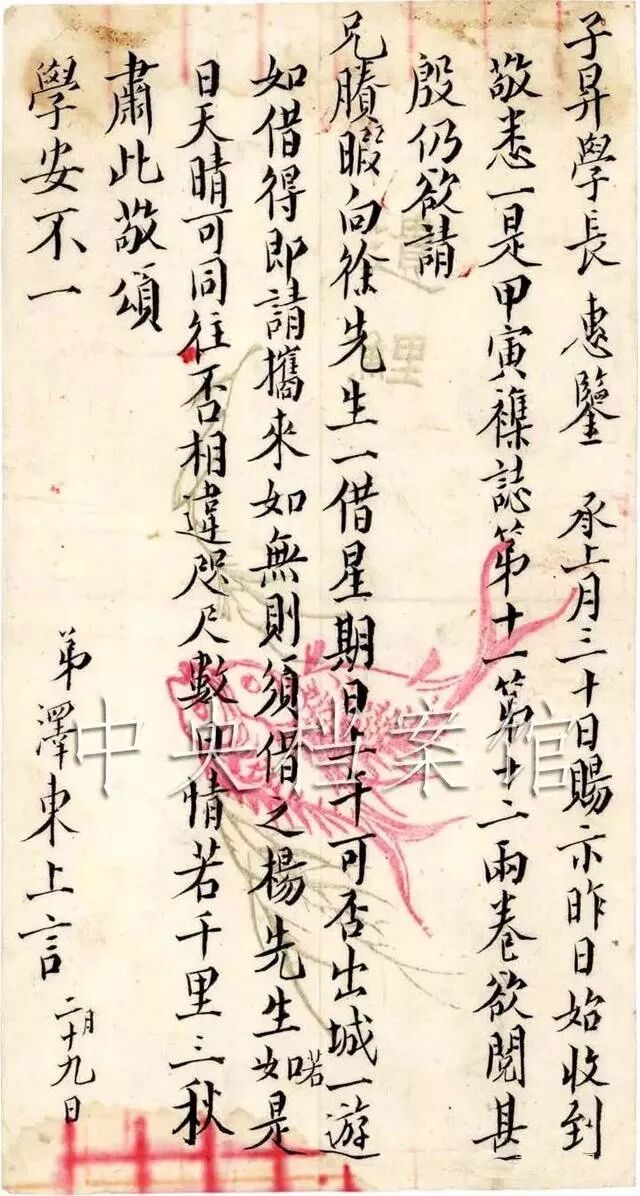 子昇學長　惠鑒　承上月三十日賜示昨日始收到
敬悉一是甲寅襍誌第十一第十二兩卷欲閱甚
殷仍欲請
兄賸暇向徐先生一借星期日上午可否出城一遊
如借得即請攜來如無則須借之楊先生如喏是
日天晴可同往否相違咫尺數日情若千里三秋
肅此敬頌
學安不一
弟澤東上言　二月十九日
中央档案馆